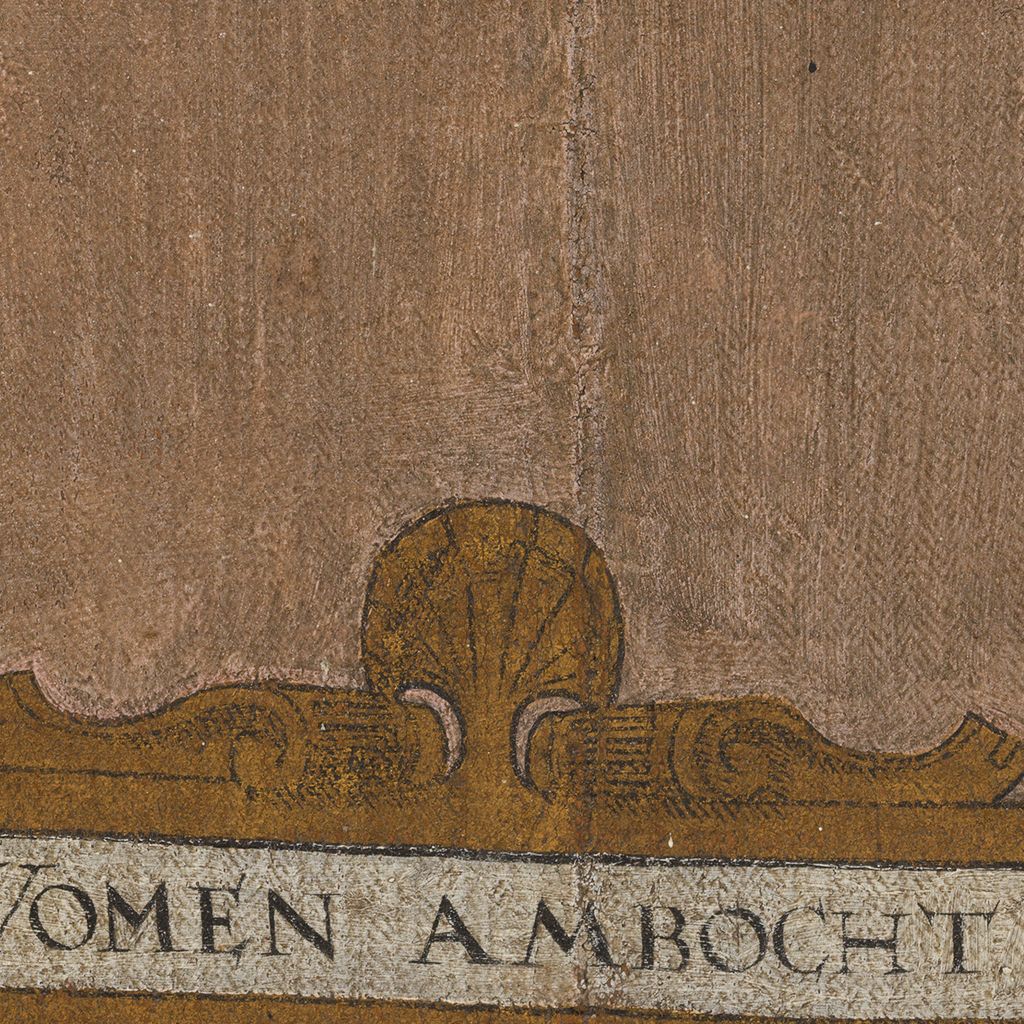 VOMEN AMBOCHT